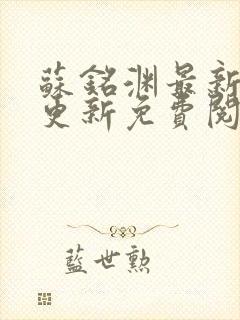 蘇銘淵最新
更新免費閱
藍世勲